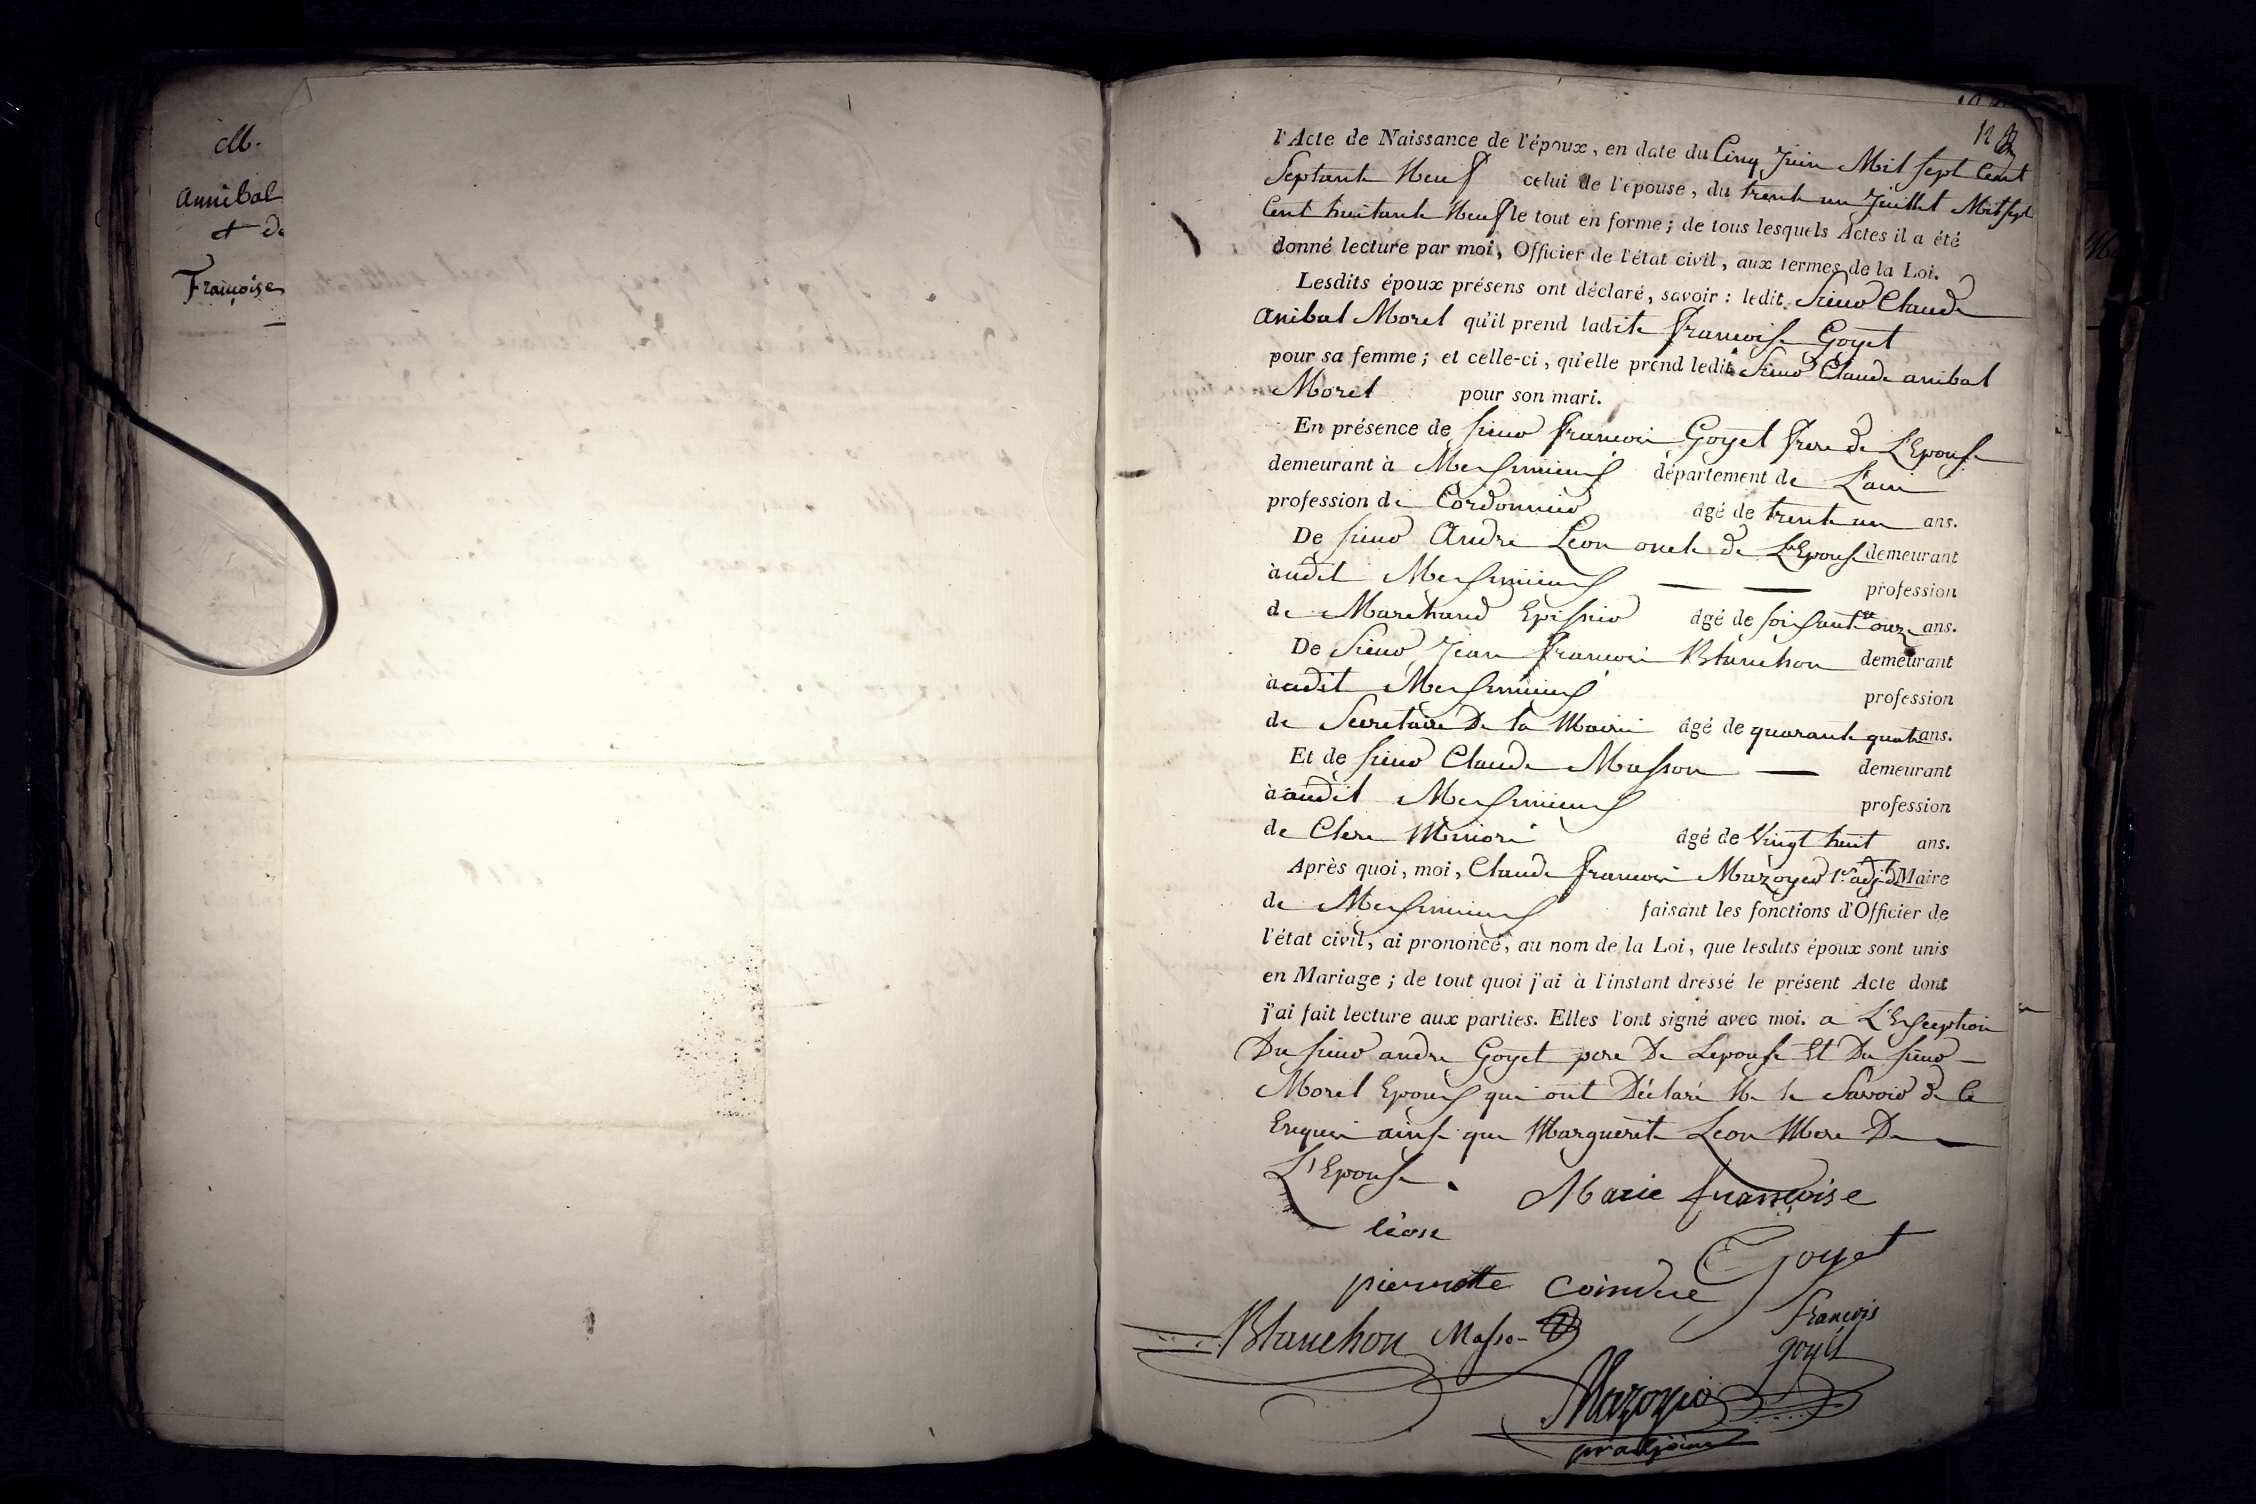 M.
annibal
et de
Françoise
12
l'Acte de Naissance de l'époux, en date du Cinq Juin Mil sept Cent
Septante Neuf celui de l'épouse, du trente un Juillet Mil sept
Cent huitante Neuf le tout en forme ; de tous lesquels Actes il a été
donné lecture par moi, Officier de l'état civil, aux termes de la Loi.
Lesdits époux présens ont déclaré, savoir : ledit Sieur Claude
anibal Morel qu'il prend ladite francoise Goyet
pour sa femme ; et celle-ci, qu'elle prend ledit Sieur Claude anibal
Morel pour son mari.
En présence de sieur francois Goyet frere de L'Epouse
demeurant à Meximieux département de L'ain
profession de Cordonnier âgé de trente un ans.
De sieur Andre Leon oncle de L'Epouse demeurant
audit Meximieux profession
de Marchand Epissier âgé de soixante onze ans.
De Sieur Jean francois Blanchon demeurant
à audit Meximieux profession
de Secretaire De la Mairie âgé de quarante quatre ans.
Et de sieur Claude Masson demeurant
à audit Meximieux profession
de Clerc Minoré âgé de Vingt huit ans.
Après quoi, moi, Claude francois Mazoyer 1er adjt Maire
de Meximieux faisant les fonctions d'Officier de
l'état civil, ai prononcé, au nom de la Loi, que lesdits époux sont unis
en Mariage ; de tout quoi j'ai à l'instant dressé le présent Acte dont
j'ai fait lecture aux parties. Elles l'ont signé avec moi. a L'Exception
Du sieur andre Goyet pere De Lepouse Et Du sieur
Morel Epoux qui ont Déclaré Ne le Savoir de Ce
Enquis ainsi que Marguerite Leon Mere De
L'Epouse.
Marie françoise
léon
Goyet
pierrette Coindre
francois
goyet
Blanchon Masson
Mazoyer
pr adjoint